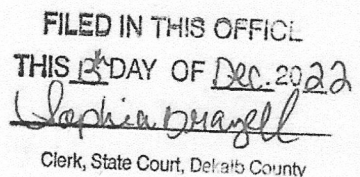 FILED IN THIS OFFICE
THIS 13th DAY OF Dec. 2022
Sophia Brazell
Clerk, State Court, Dekalb County